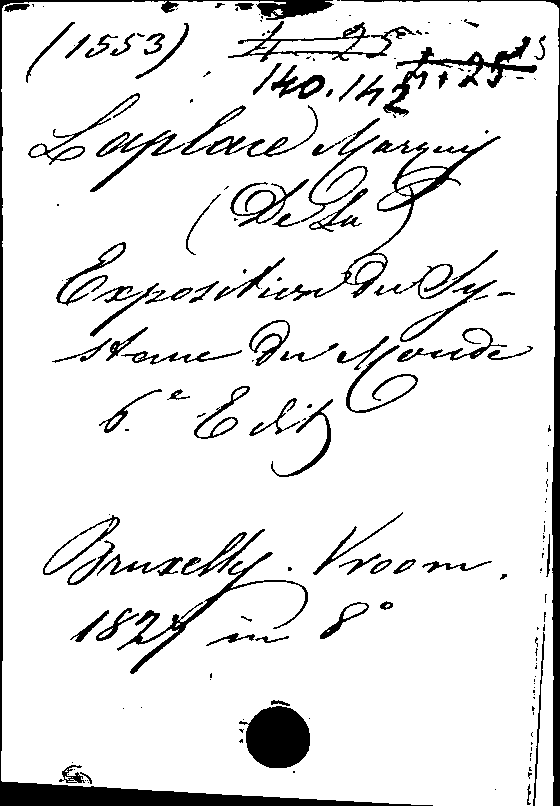 (1553)
140.142
Laplace Marquis
(De La)
Exposition du Sy-
steme du Monde
6.e Edit
Bruxelles. Vroom.
1827 in 8°